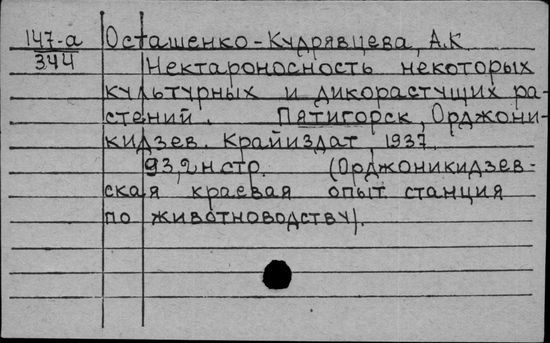 147-а Осташенко-Кудрявцева, А.К
344 Нектароносность некоторых
культурных и дикорастущих ра-
стений. Пятигорск, Орджони-
кидзев. Крайиздат, 1937.
93,2н.стр. (Орджоникидзев-
ская краевая опыт. станция
по животноводству).